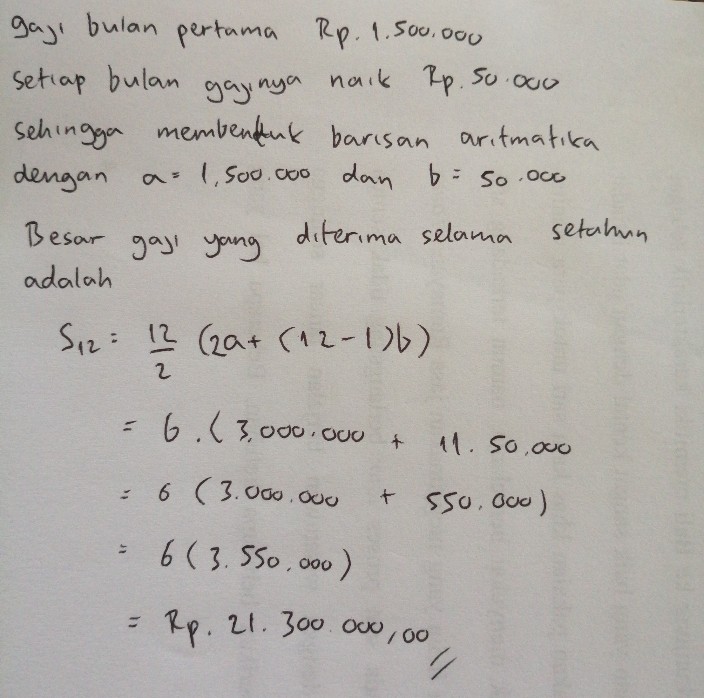 gaji bulan pertama Rp. 1.500.000
setiap bulan gajinya naik Rp. 50.000
sehingga membentuk barisan aritmatika
dengan a = 1,500.000 dan b = 50.000
Besar gaji yang diterima selama setahun
adalah
S12 = 12/2 (2a + (12-1)b)
= 6 . ( 3,000.000 + 11. 50,000
= 6 ( 3.000.000 + 550,000)
= 6 ( 3.550,000)
= Rp. 21.300.000,00 //